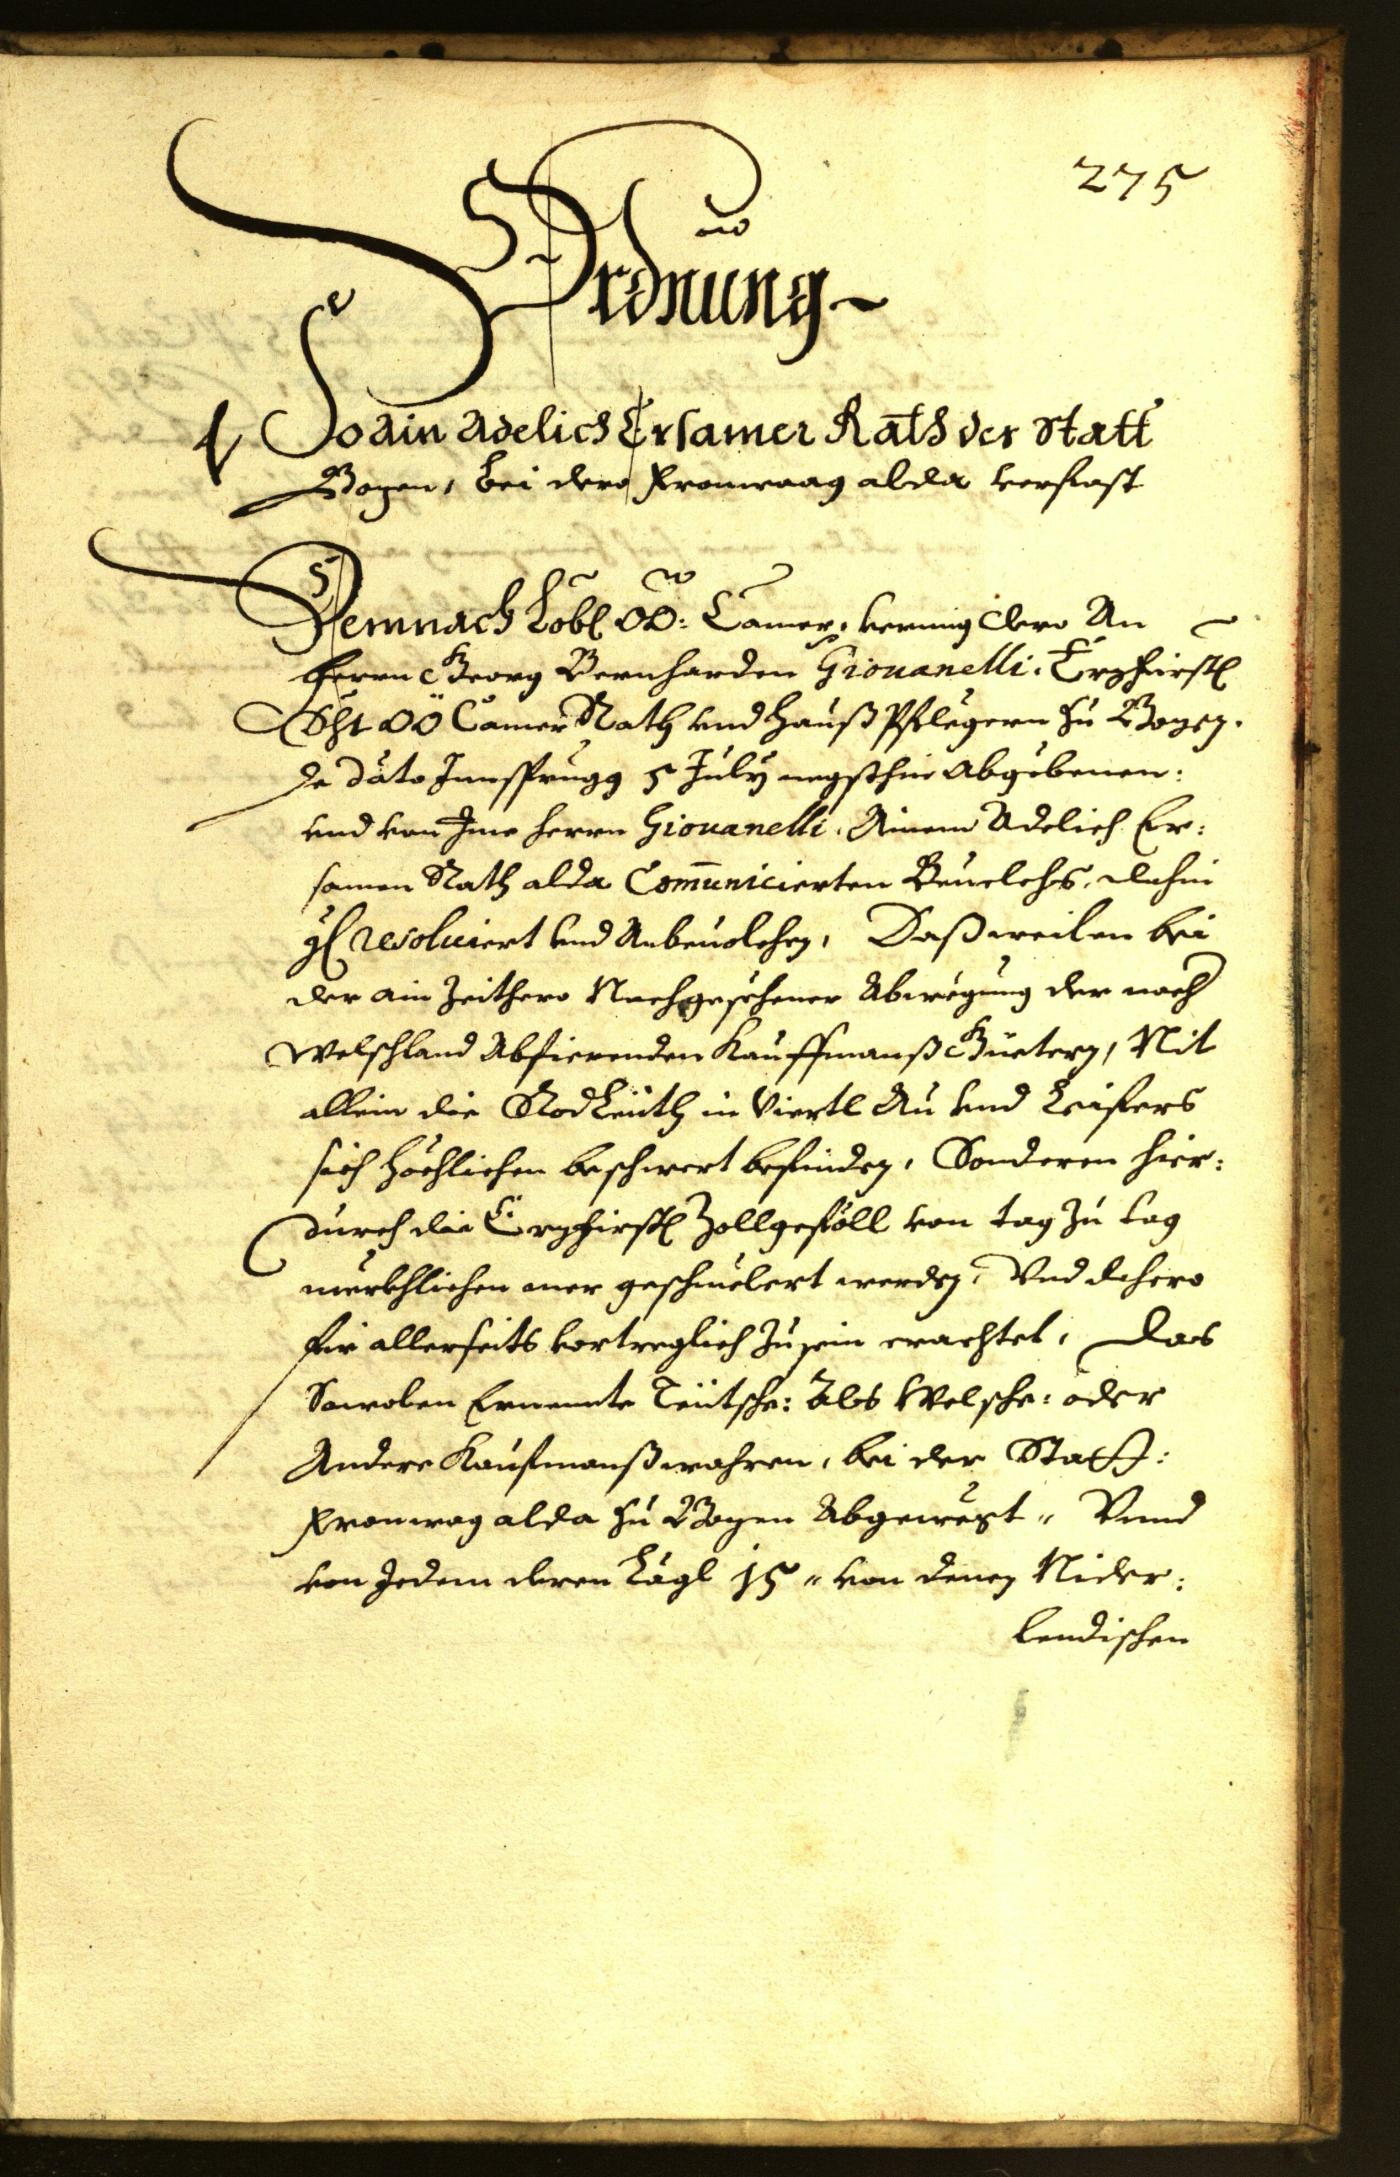 275
Ordnung
So ain Adelich Ersamer Rath der Statt
Bozen, bei dero Fronwaag alda verfast
Demnach Lobl OÖ: Camer, vermig dero An
herrn Georg Bernharden Giouanelli. Erzfürstl
Dht OÖ Camer Rath vnd Hauß Pflegern zu Bozen.
de dato Innsprugg 5 July negsthin Abgebenen:
vnd von Ime herrn Giouanelli. Ainem Adelich Er:
samen Rath alda Com̄unicierten Beuelchs, dahin
gl resoluiert vnd Anbeuolchen, Daß weilen bei
der ain Zeithero Nachgesehener Abwegung der nach
Welschland Abfierenden Kauffmanß Güetern, Nit
allein die Rod Leüth in Viertl Au vnd Leifers
sich höchlichen beschwert befinden, Sonderen hier:
durch die Erzfirstl Zollgeföll von tag zu tag
merkhlichen mer geschmelert werden, Vnd dahero
für allerseits vortreglich zu sein erachtet, Das
Sowolen Ernennte Teütsche: Als Welsche: oder
Andere Kaufmanßwahren, bei der Statt:
Fronwag alda zu Bozen Abgewegt, Vnnd
von Jedem deren Lägl 15 „ von denen Nider:
lendischen